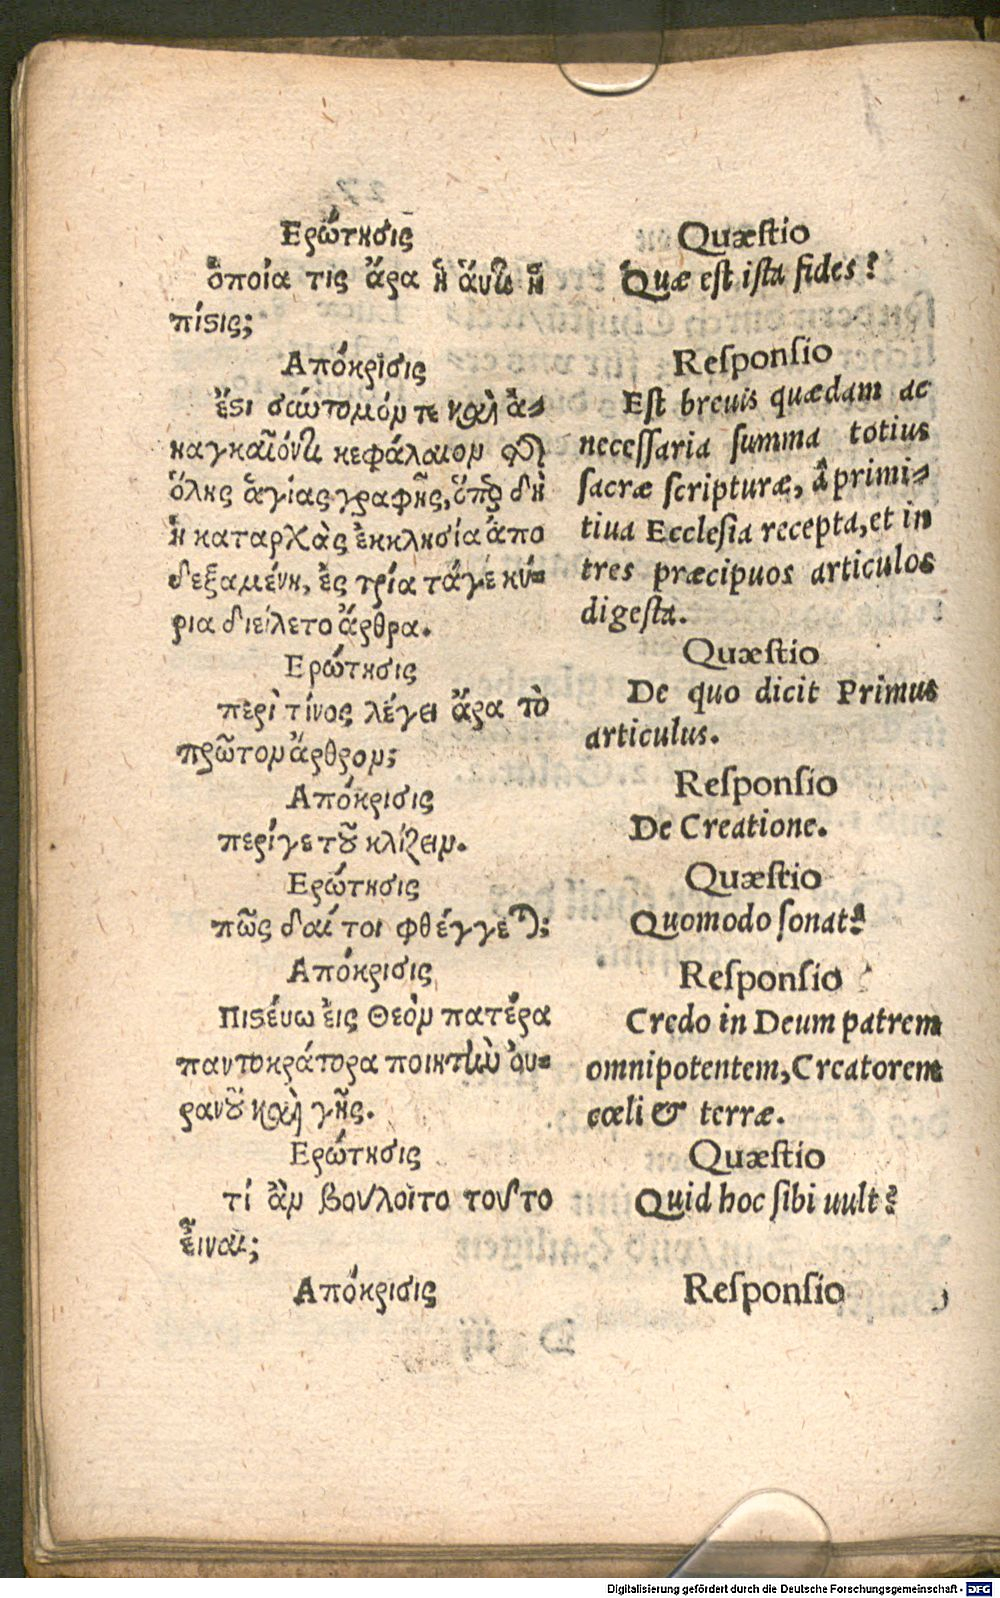 Ερώτησις
ὁποία τὶς ἄρα ἡ ἅυτη ἡ
πίστις;
Απόκρισις
ἔστι σύντομόν τε καὶ ἀ-
ναγκαῖόντι κεφάλαιον τῆς
ὅλης ἁγίας γραφῆς, ὅπερ δὴ
ἡ καταρχὰς ἐκκλησία ἀπο
δεξαμένη, ἐς τρία τάγε κύ-
ρια διείλετο ἄρθρα.
Ερώτησις
περὶ τίνος λέγει ἄρα τὸ
πρῶτον ἄρθρον;
Απόκρισις
περίγε τοῦ κλίζειν.
Ερώτησις
πῶς δαί τοι φθέγγεται;
Απόκρισις
Πιστέυω ἐις Θεὸν πατέρα
παντοκράτορα ποιητὴν ὀυ-
ρανοῦ καὶ γῆς.
Ερώτησις
τί ἂν βούλοιτο τοῦτο
ἐῖναι;
Απόκρισις
Quæstio
Quæ est ista fides?
Responsio
Est breuis quædam ac
necessaria summa totius
sacræ scripturæ, à primi-
tiua Ecclesia recepta, et in
tres præcipuos articulos
digesta.
Quæstio
De quo dicit Primus
articulus.
Responsio
De Creatione.
Quæstio
Quomodo sonat?
Responsio
Credo in Deum patrem
omnipotentem, Creatorem
cœli & terræ.
Quæstio
Quid hoc sibi uult?
Responsio
Digitalisierung gefördert durch die Deutsche Forschungsgemeinschaft - DFG